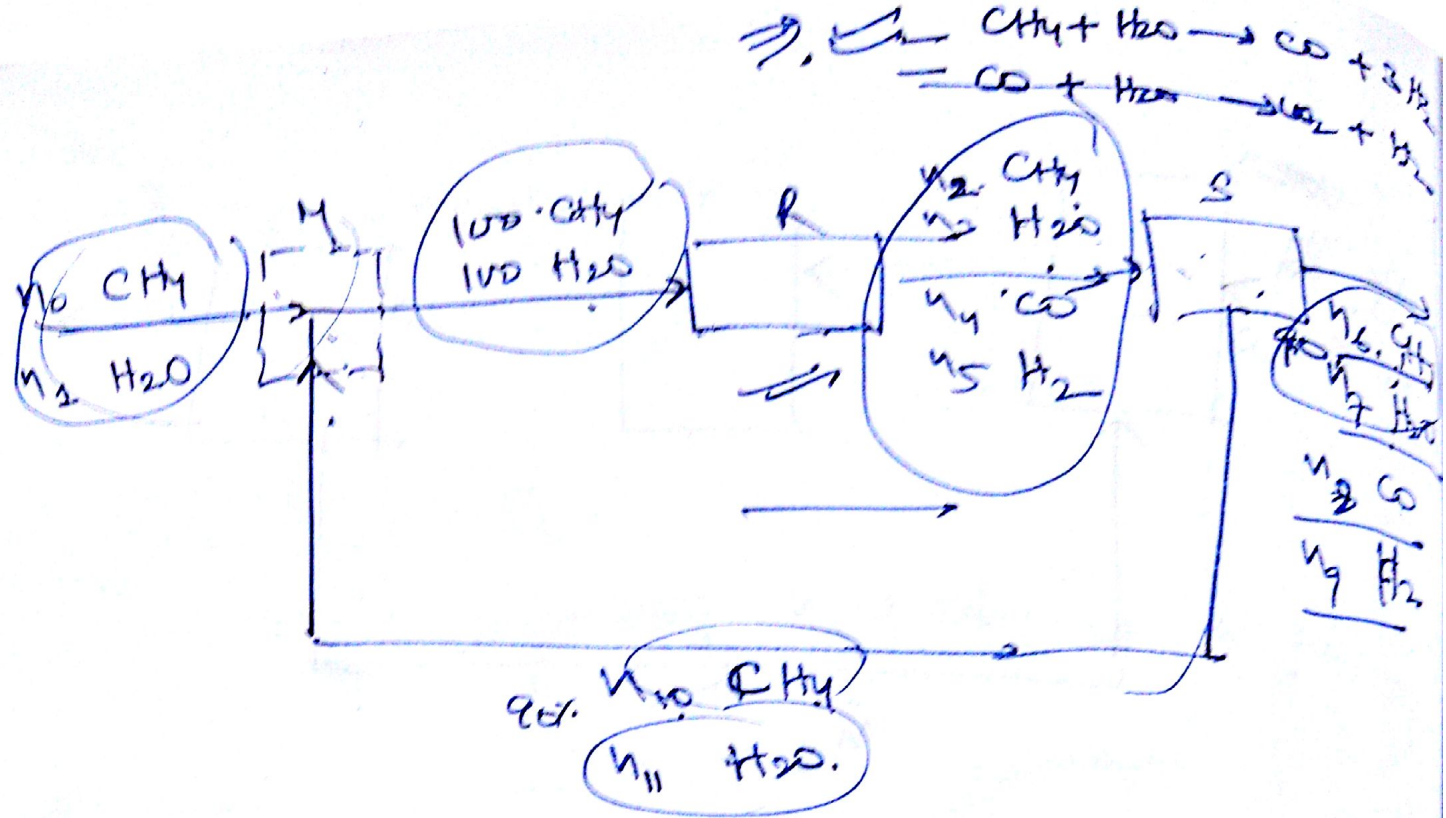 CH4 + H2O → CO + 3H2
CO + H2O → CO2 + H2
M
n0 CH4
n1 H2O
100 CH4
100 H2O
R
n2 CH4
n3 H2O
n4 CO
n5 H2
S
n6 CH4
n7 H2O
n8 CO
n9 H2
90% n10 CH4
n11 H2O.